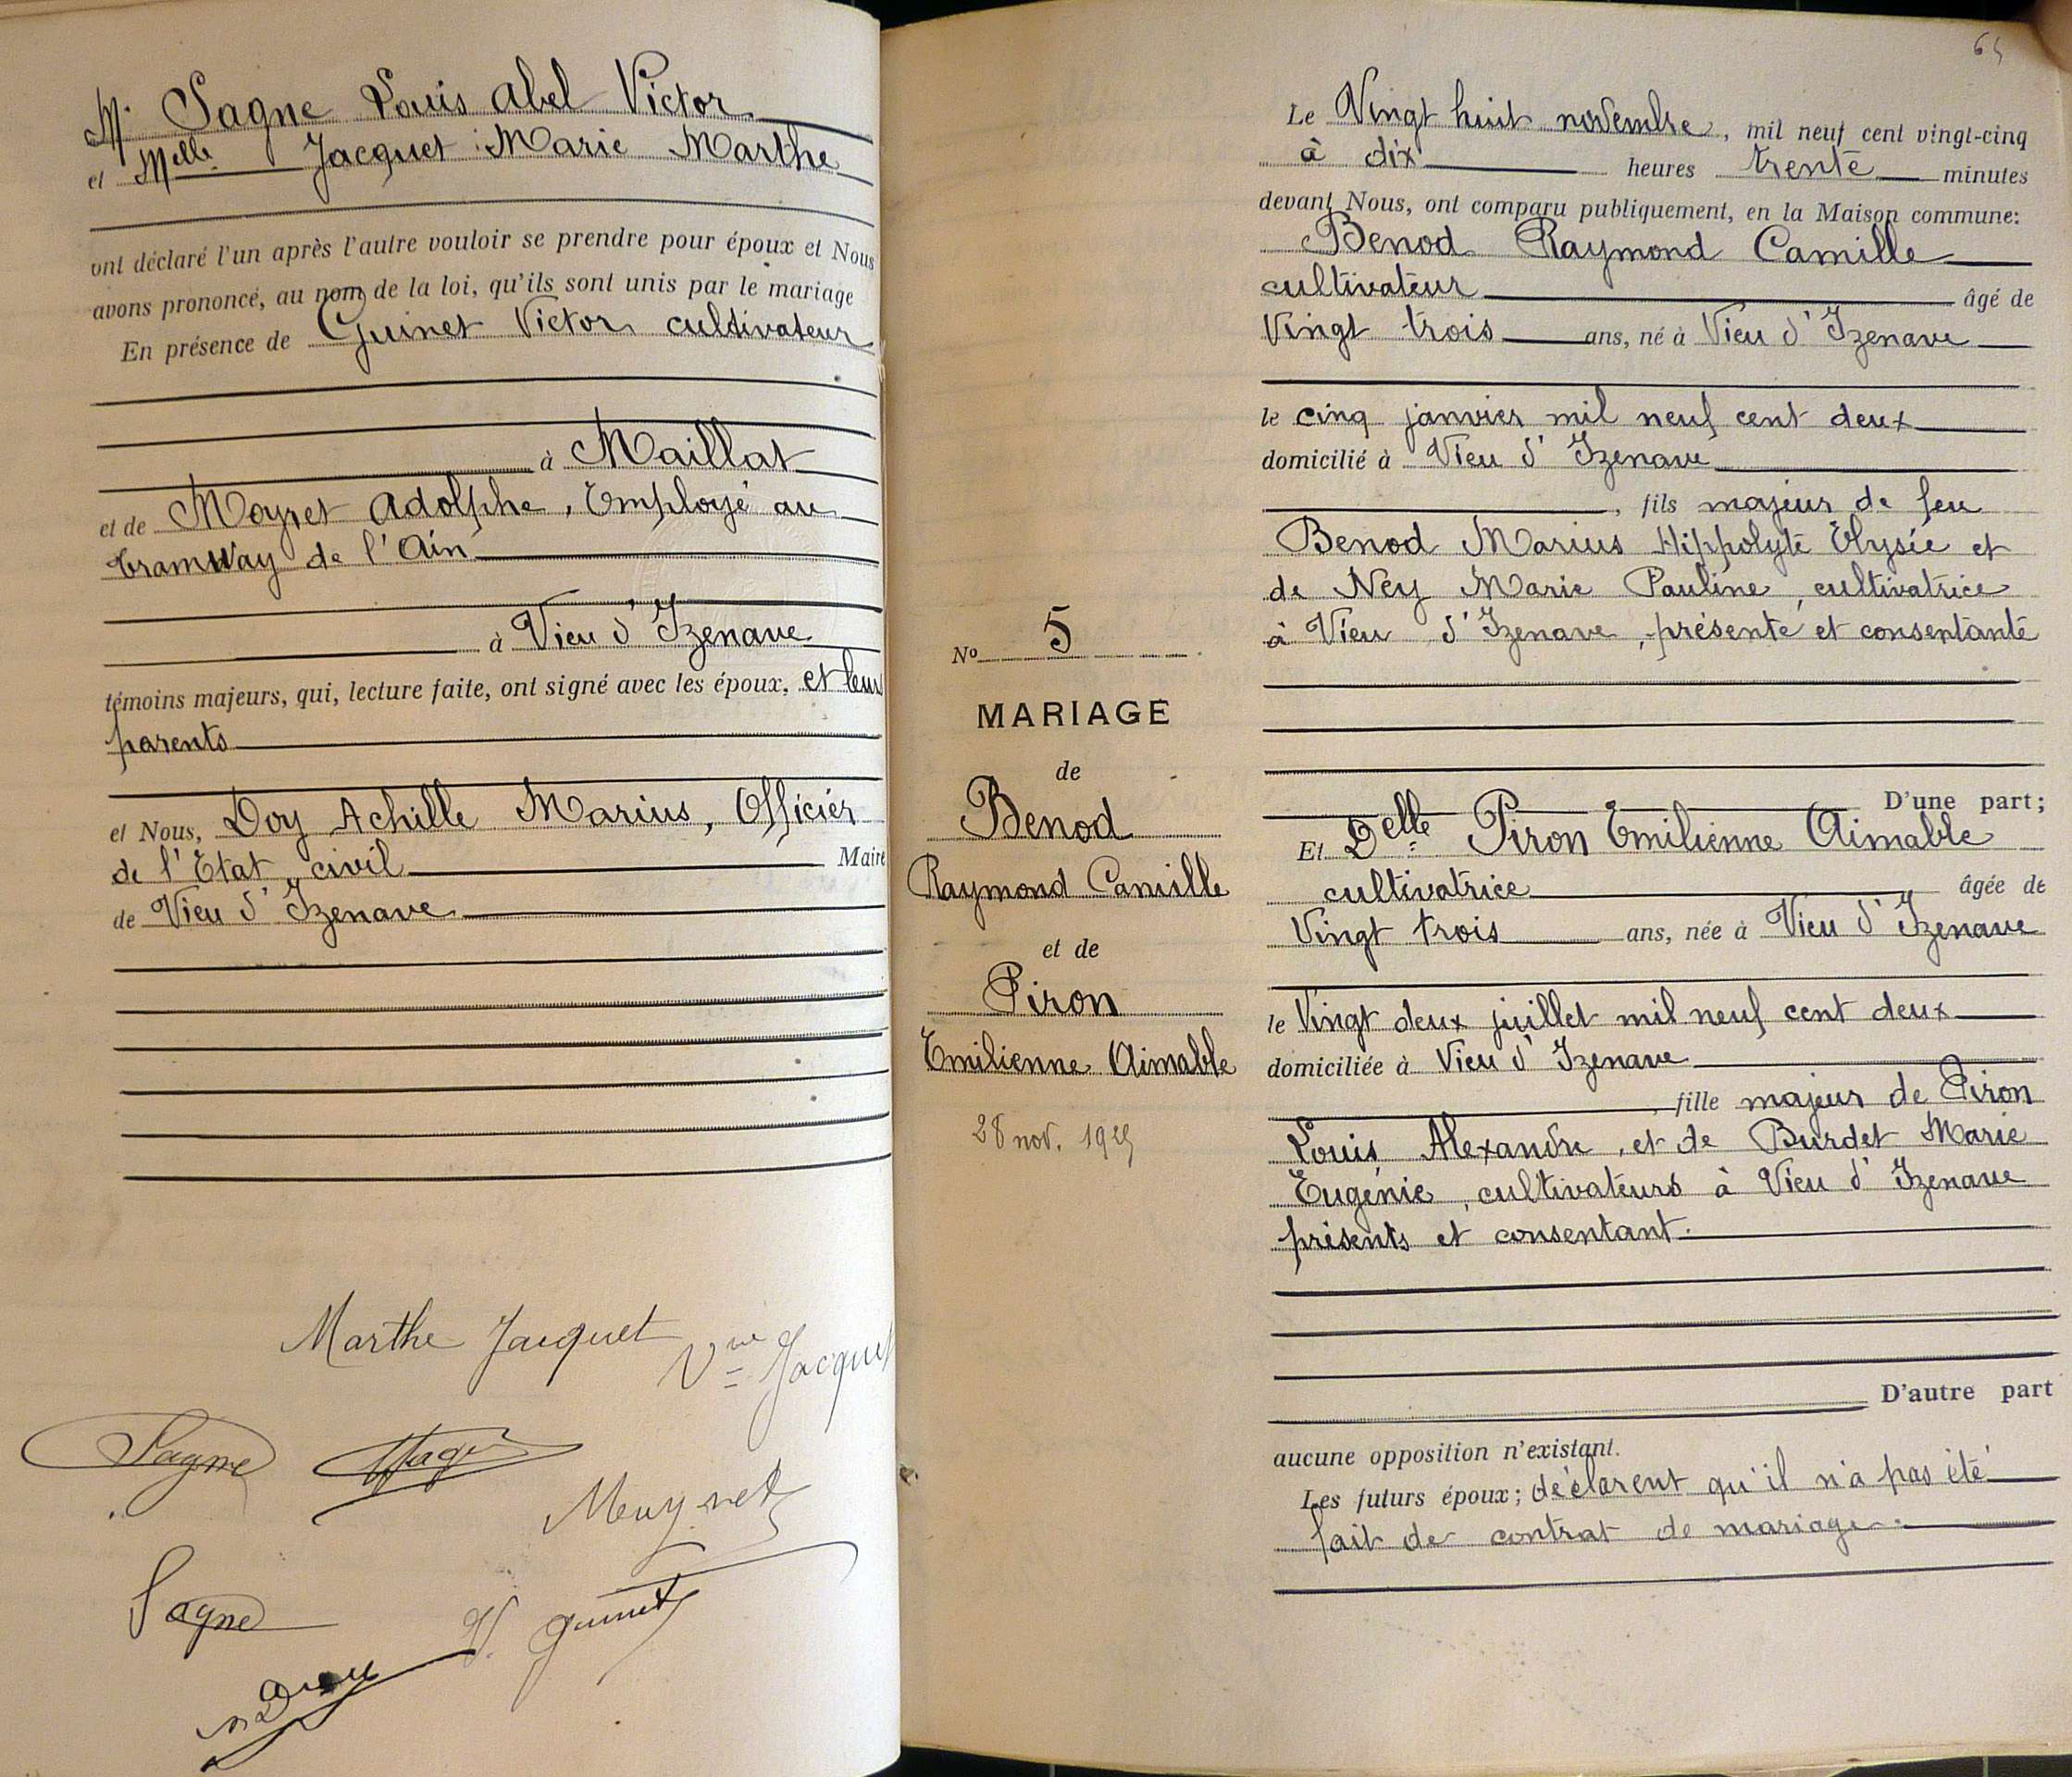 M. Sagne Louis Abel Victor
et Melle Jacquet Marie Marthe
ont déclaré l'un après l'autre vouloir se prendre pour époux et Nous
avons prononcé, au nom de la loi, qu'ils sont unis par le mariage
En présence de Guinet Victor cultivateur
à Maillat
et de Moyret Adolphe, Employé au
tramway de l'Ain
à Vieu d'Izenave
témoins majeurs, qui, lecture faite, ont signé avec les époux, et leurs
parents
et Nous, Doy Achille Marius, Officier
de l'Etat civil Maire
de Vieu d'Izenave
Marthe Jacquet
Vve Jacquet
Sagne
Sagne
V. Guinet
65
Le Vingt huit novembre, mil neuf cent vingt-cinq
à dix heures trente minutes
devant Nous, ont comparu publiquement, en la Maison commune:
Benod Raymond Camille
cultivateur âgé de
Vingt trois ans, né à Vieu d'Izenave
le cinq janvier mil neuf cent deux
domicilié à Vieu d'Izenave
, fils majeur de feu
Benod Marius Hippolyte Elysée et
de Ney Marie Pauline, cultivatrice
à Vieu d'Izenave, présente et consentante
No 5
MARIAGE
de
Benod
Raymond Camille
et de
Piron
Emilienne Aimable
28 nov. 1925
D'une part;
Et Delle Piron Emilienne Aimable
cultivatrice âgée de
Vingt trois ans, née à Vieu d'Izenave
le Vingt deux juillet mil neuf cent deux
domiciliée à Vieu d'Izenave
, fille majeur de Piron
Louis Alexandre, et de Burdet Marie
Eugénie, cultivateurs à Vieu d'Izenave
présents et consentant.
D'autre part
aucune opposition n'existant.
Les futurs époux; déclarent qu'il n'a pas été
fait de contrat de mariage.